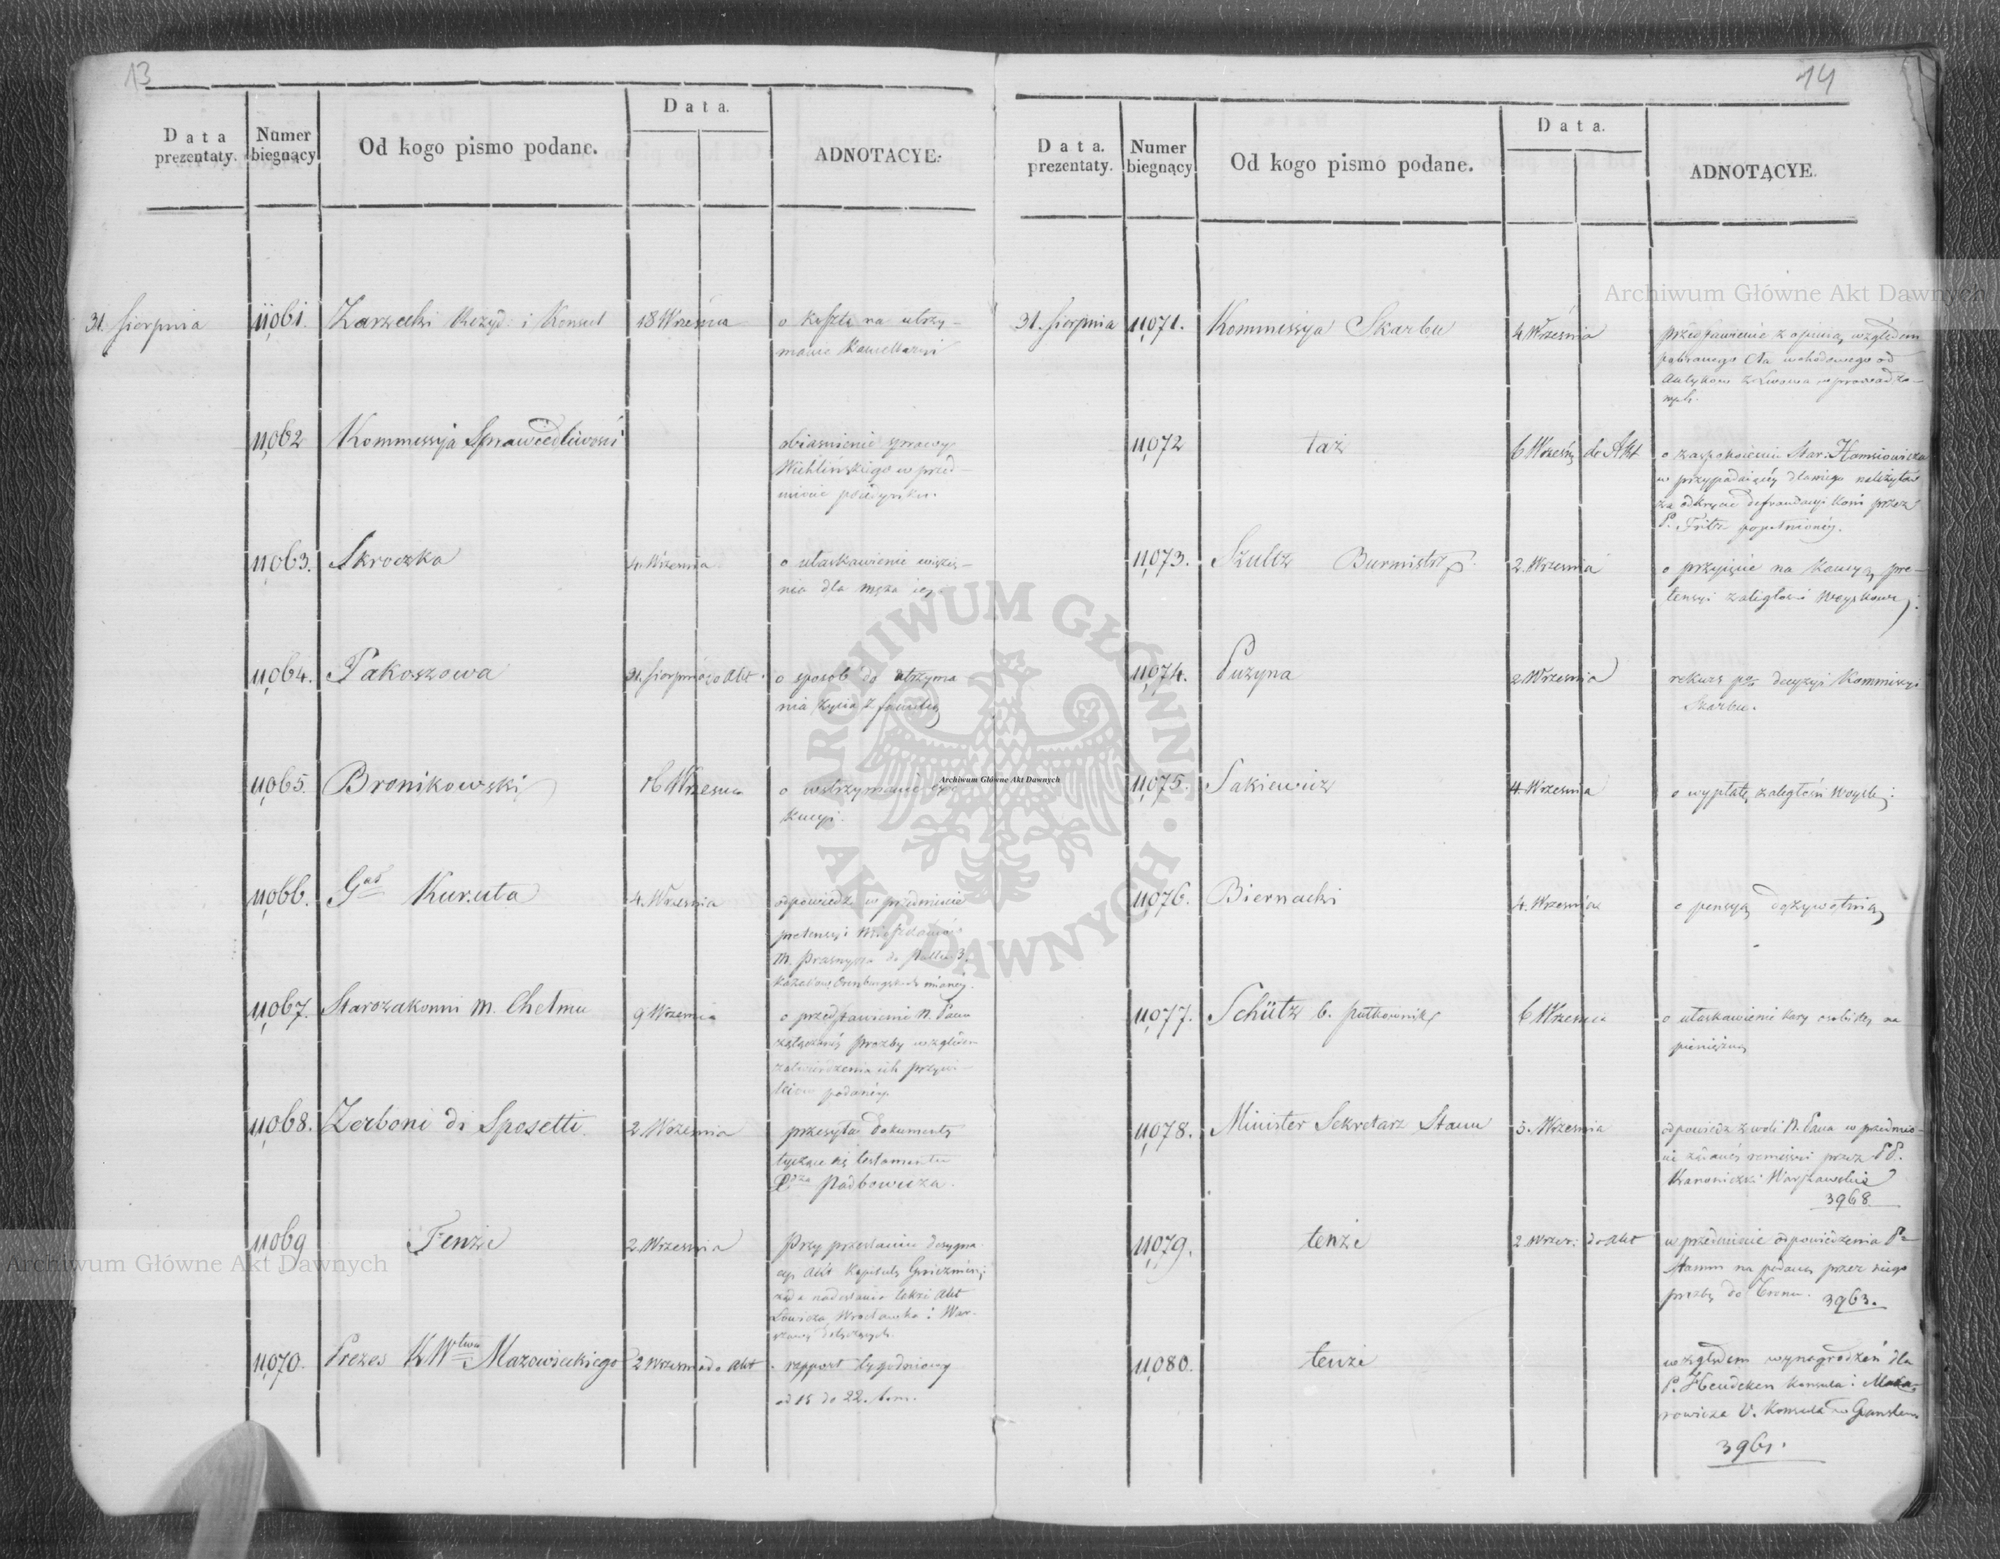 13
Data prezentaty.
Numer biegnący
Od kogo pismo podane.
Data.
ADNOTACYE.
31. Sierpnia 11061. Zarzecki Rezyd: i Konsul 18 Września o koszta na utrzy-
manie Kancellaryi
11062 Kommissyja Sprawiedliwości obiasnienie sprawy
w przed-
miocie pojedynku.
11063. Skroczka 4. Września o ułaskawienie więzie-
nia dla męża iey.
11064. Pakoszowa 31. Sierpnia do Akt. o sposób do utrzyma
nia życia z familią
11065. Bronikowski 16 Września o wstrzymanie exe
kucyi.
11066. Gał Kuruta 4. Września odpowiedź w przedmiocie
pretensyi
M. Prasnysza do Pułku 3.
11067. Starozakonni M. Chełmu 9 Września o przedstawienie N. Panu
prozby względem
zatwierdzenia ich przywi-
leiow podaney.
11068. Zerboni di Sposetti. 2. Września przesyła dokumenta
tyczące się testamentu
Radbowicza.
11069 Tenże 2. Września Przy przesłaniu designa
cyi Akt Kapituły Gnieźnień:
żąda nadesłania także Akt
Łowicza, Wrocławka i War-
szawy
11070. Prezes K Wtwa Mazowieckiego 2 Września do Akt rapport tygodniowy
od 15 do 22. b.m.
14
Data. prezentaty.
Numer biegnący
Od kogo pismo podane.
Data.
ADNOTACYE.
31. Sierpnia 11071. Kommissyja Skarbu 4 Września przedstawienie z opinią względem
pobranego Cła wchodowego od
Antyków z Lwowa wprowadzo-
nych.
11072 taż 6 Wrześ: do Akt o zaspokoienie Star.
w przypadaiącey dlaniego należytości
za odkrycie defraudacyi koni przez
P. Fritz popełnioney.
11073. Szultz Burmistrz 2. Września o przyjęcie na kaucyą pre-
tensyi zaległości Woyskowey:
11074. Puzyna 2 Września rekurs pko decyzyi Kommissyi
Skarbu.
11075. Sakiewicz 4. Września o wypłatę zaległości Woysk:
11076. Biernacki 4. Września o pensyą dożywotnią
11077. Schütz b. pułkownik 6 Września o ułaskawienie kary osobistey na
pieniężną
11078. Minister Sekretarz Stanu 3. Września odpowiedź z woli N. Pana w przedmio-
cie żądaney remissyi przez PP.
Kanoniczki Warszawskie
3968
11079. tenże 2. Wrześ: do Akt w przedmiocie odpowiedzenia Pa-
Stamm na podaną przez niego
prozbę do Tronu. 3963.
11080. tenże względem wynagrodzeń dla
P. Heudeken Konsula i Maka-
rowicza V. Konsula w Gdansku
3961.
Archiwum Główne Akt Dawnych
Archiwum Główne Akt Dawnych
Archiwum Główne Akt Dawnych
ARCHIWUM GŁÓWNE · AKT DAWNYCH ·